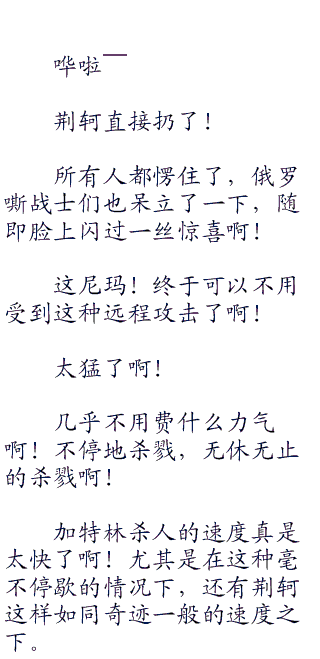 哗啦——
荆轲直接扔了！
所有人都愣住了，俄罗
嘶战士们也呆立了一下，随
即脸上闪过一丝惊喜啊！
这尼玛！终于可以不用
受到这种远程攻击了啊！
太猛了啊！
几乎不用费什么力气
啊！不停地杀戮，无休无止
的杀戮啊！
加特林杀人的速度真是
太快了啊！尤其是在这种毫
不停歇的情况下，还有荆轲
这样如同奇迹一般的速度之
下。